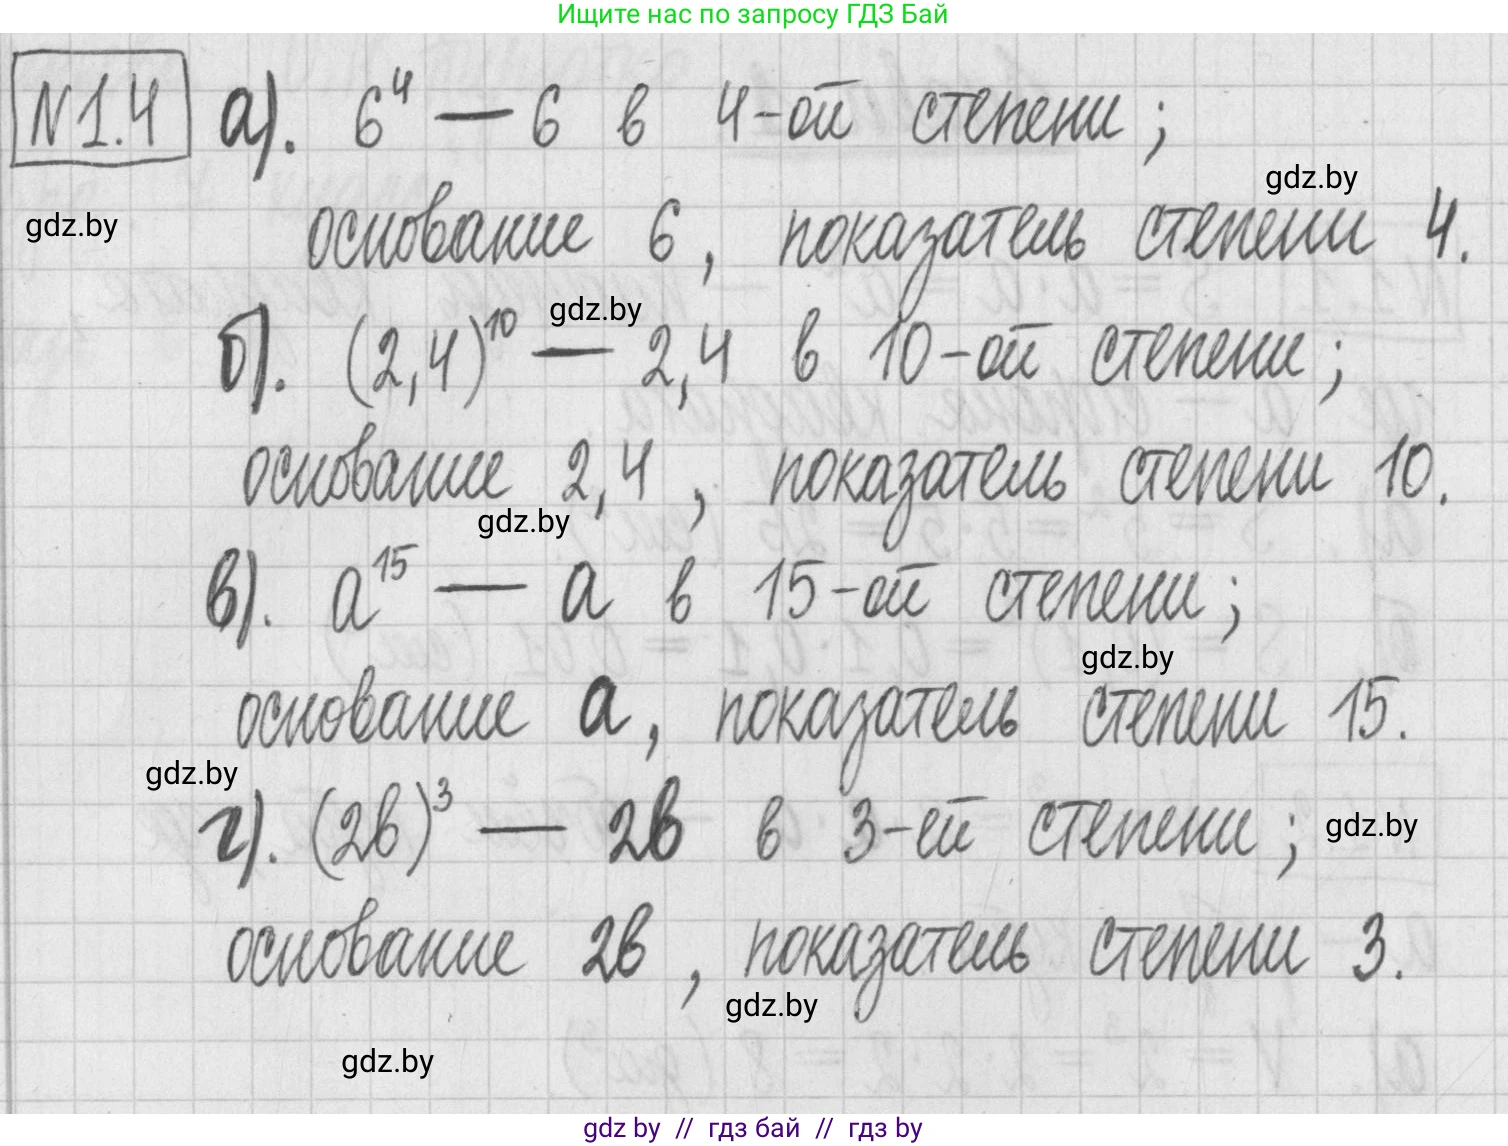 Ищите нас по запросу ГДЗ Бай
N1.4 а). 6⁴ — 6 в 4-ой степени;
gdz.by
gdz.by
основание 6, показатель степени 4.
gdz.by
б). (2,4)¹⁰ — 2,4 в 10-ой степени;
основание 2,4, показатель степени 10.
gdz.by
в). a¹⁵ — a в 15-ой степени;
gdz.by
основание a, показатель степени 15.
gdz.by
г). (2b)³ — 2b в 3-ей степени;
gdz.by
основание 2b, показатель степени 3.
gdz.by
gdz.by
gdz by // гдз бай // гдз by